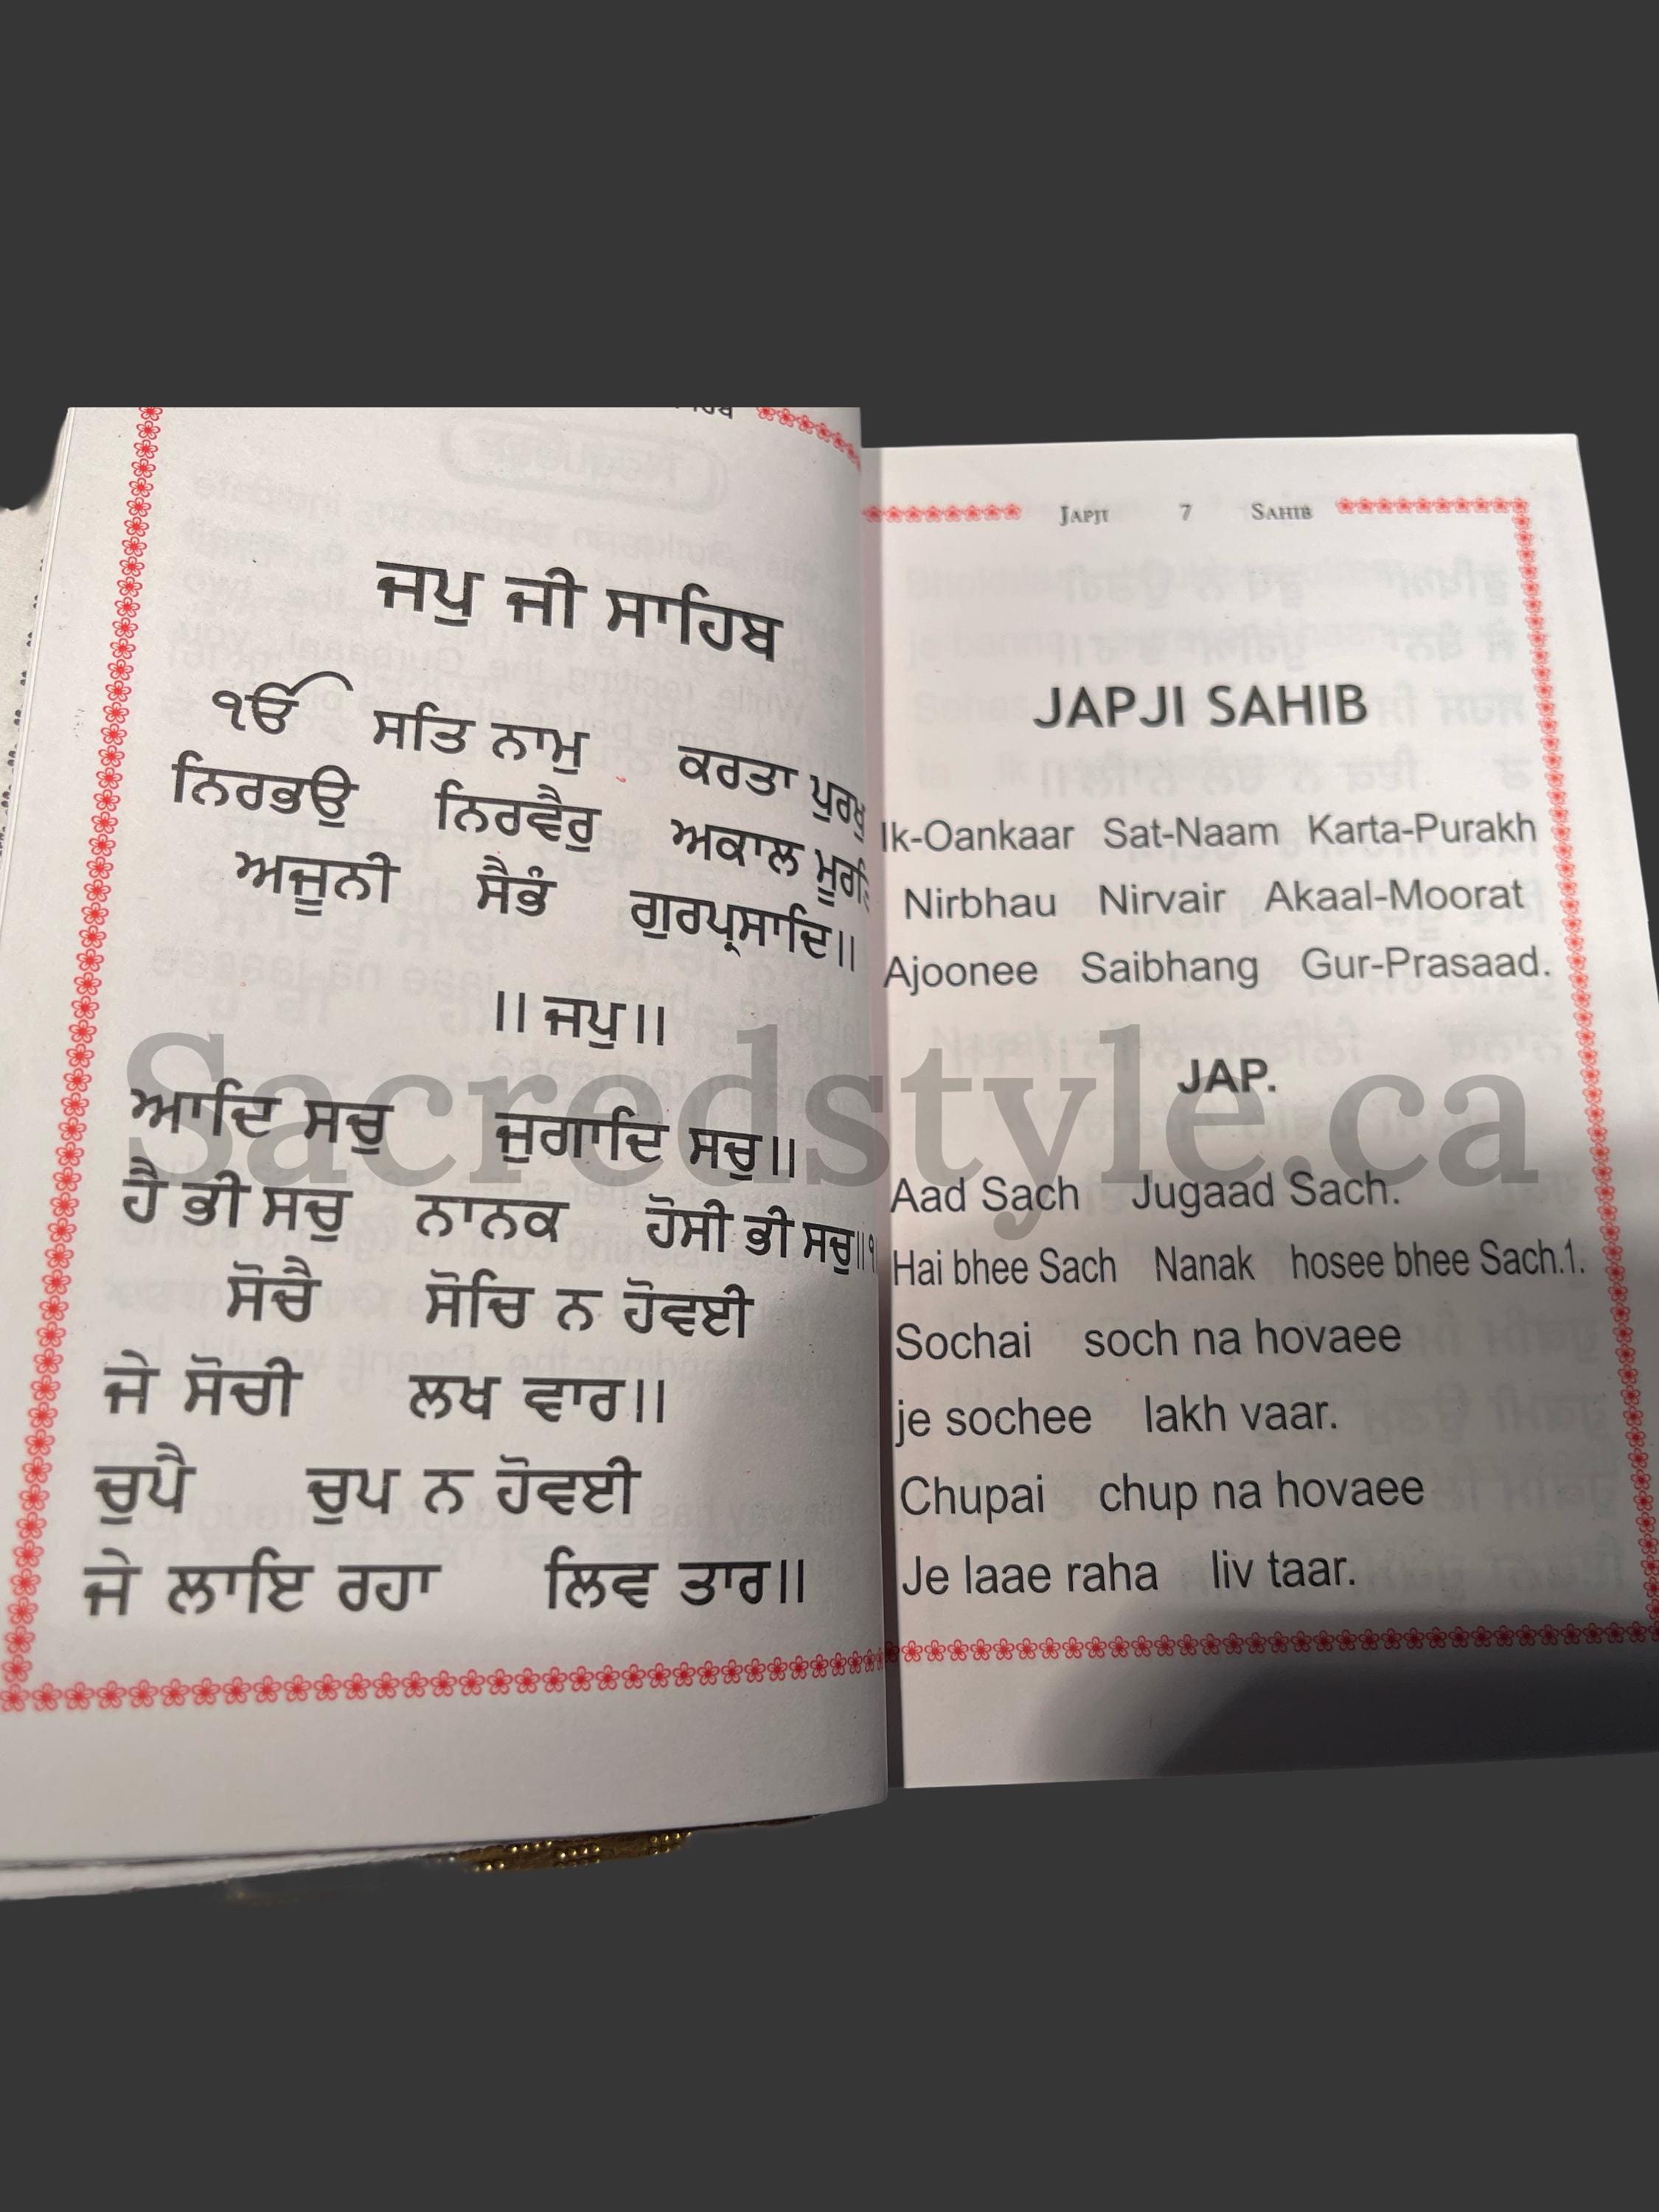 ਜਪੁ ਜੀ ਸਾਹਿਬ
ੴ ਸਤਿ ਨਾਮੁ ਕਰਤਾ ਪੁਰਖੁ
ਨਿਰਭਉ ਨਿਰਵੈਰੁ ਅਕਾਲ ਮੂਰਤਿ
ਅਜੂਨੀ ਸੈਭੰ ਗੁਰਪ੍ਰਸਾਦਿ॥
॥ ਜਪੁ॥
ਆਦਿ ਸਚੁ ਜੁਗਾਦਿ ਸਚੁ॥
ਹੈ ਭੀ ਸਚੁ ਨਾਨਕ ਹੋਸੀ ਭੀ ਸਚੁ॥੧
ਸੋਚੈ ਸੋਚਿ ਨ ਹੋਵਈ
ਜੇ ਸੋਚੀ ਲਖ ਵਾਰ॥
ਚੁਪੈ ਚੁਪ ਨ ਹੋਵਈ
ਜੇ ਲਾਇ ਰਹਾ ਲਿਵ ਤਾਰ॥
JAPJI 7 SAHIB
JAPJI SAHIB
Ik-Oankaar Sat-Naam Karta-Purakh
Nirbhau Nirvair Akaal-Moorat
Ajoonee Saibhang Gur-Prasaad.
JAP.
Aad Sach Jugaad Sach.
Hai bhee Sach Nanak hosee bhee Sach.1.
Sochai soch na hovaee
je sochee lakh vaar.
Chupai chup na hovaee
Je laae raha liv taar.
Sacredstyle.ca